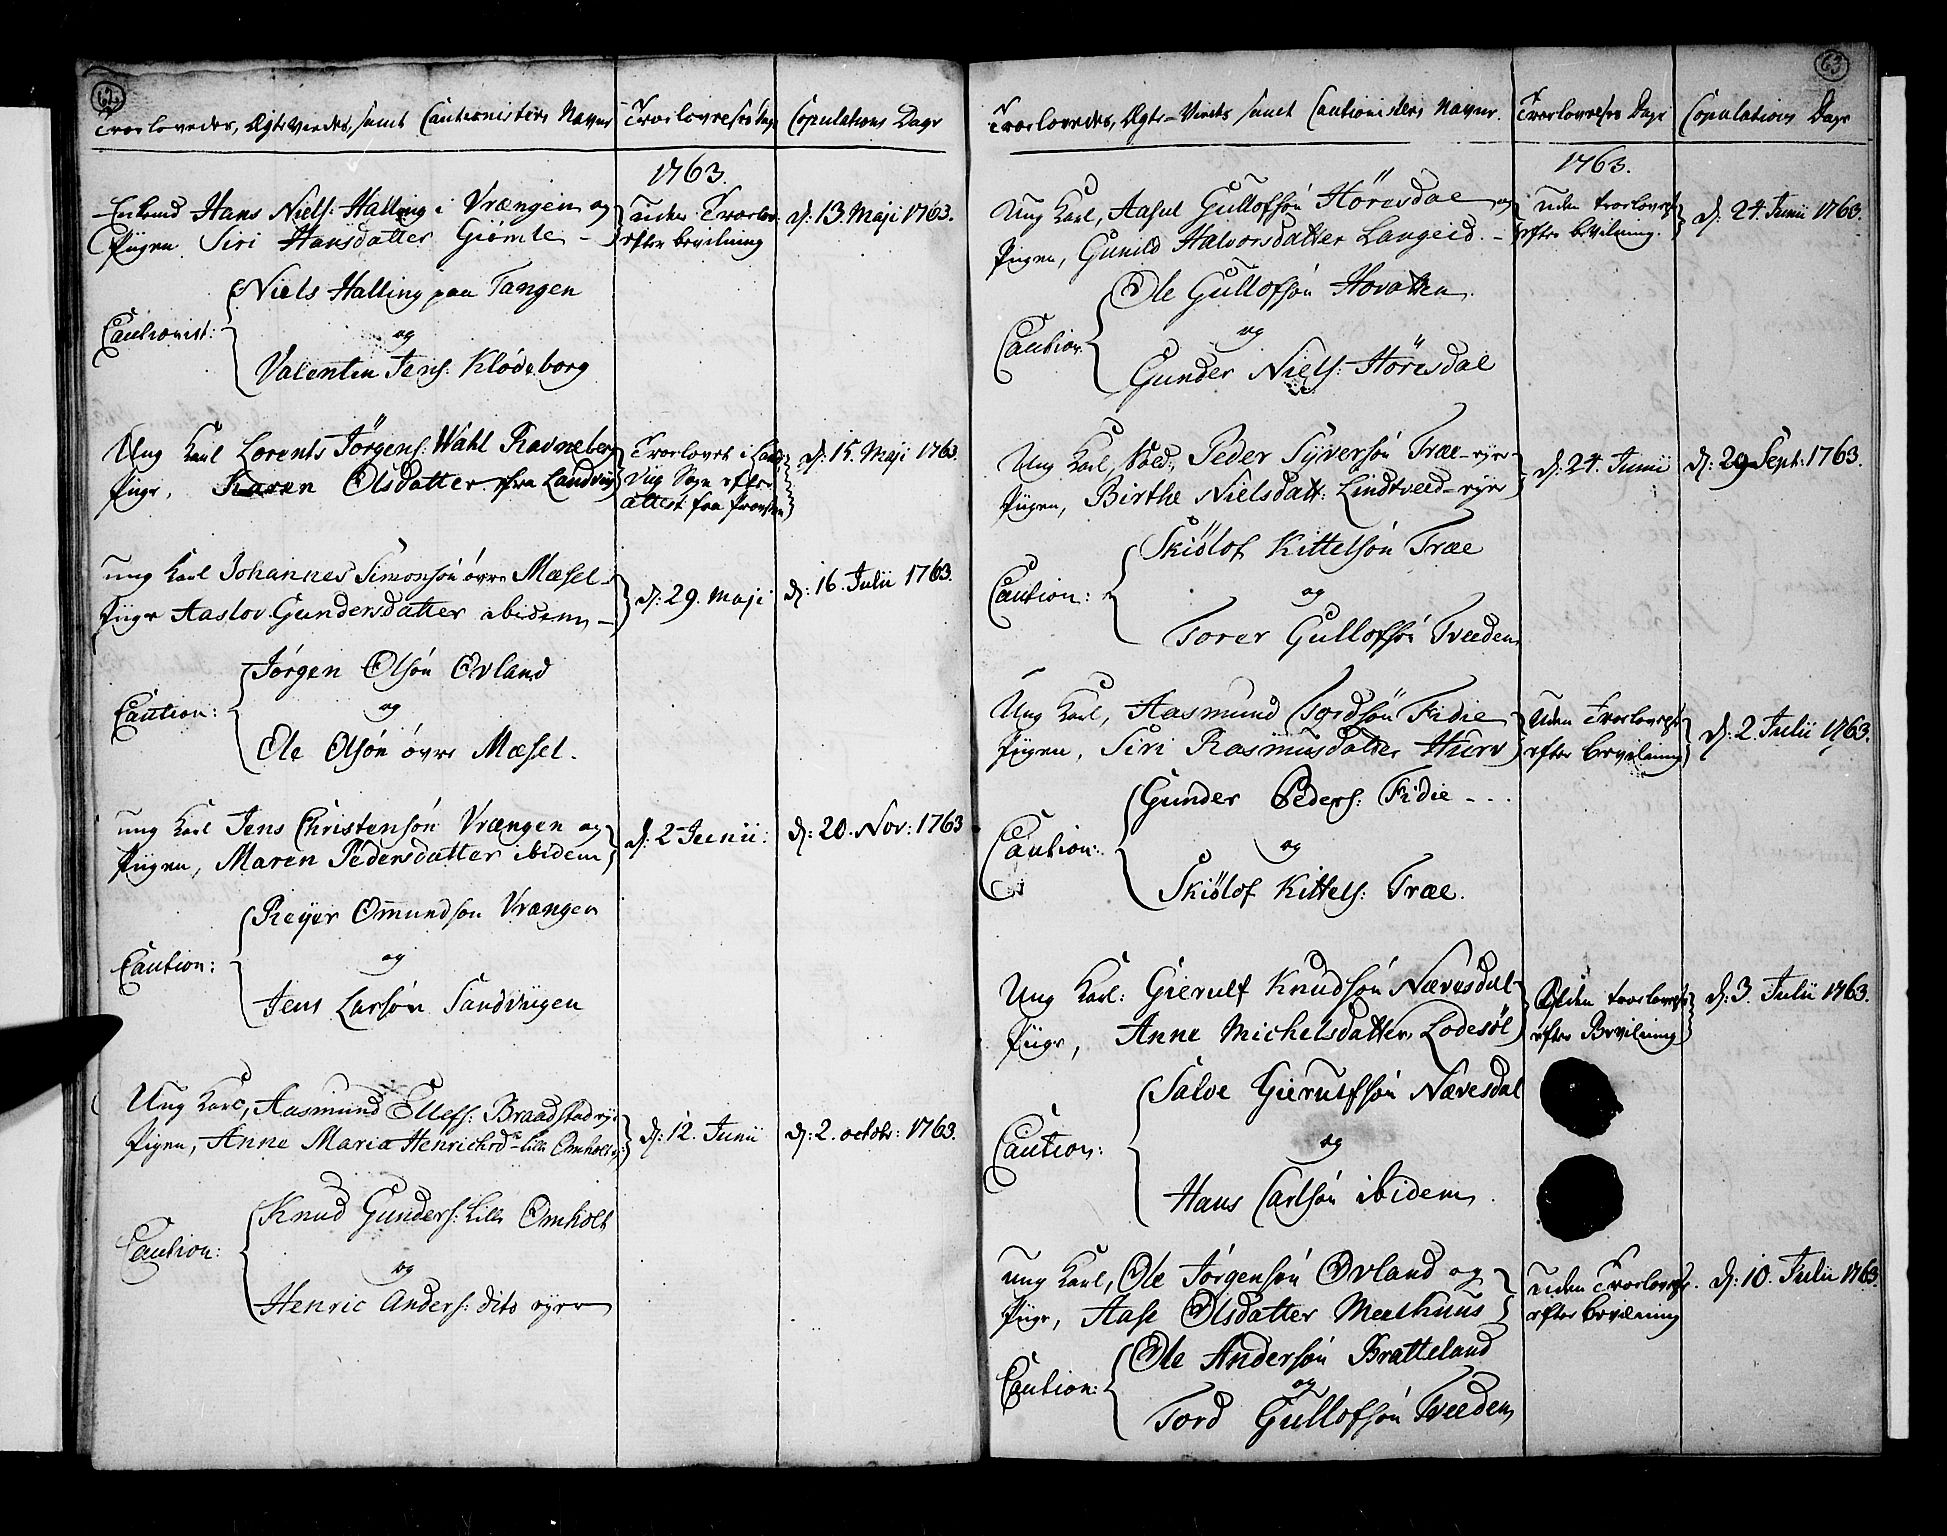 62.
Trorlovedes, Ægte Viedes, samt Cautionisters Navne
Trorlovelses Dage
Copulations Dage
1763.
Enkemd Hans Niels: Halling i Vrængen og
Pigen Siri Hansdatter Giömle -
uden Trorlov.
efter bevilning
d: 13. Maji 1763.
Niels Halling paa Tangen
Cautionist:
og
Valentin Jens: Klödeborg
Ung Karl Lorents Jörgens: Wahl Ravneberg
Pige, Karen Olsdatter fra Landvig
Trorlovet i Land
vig Sogn efter
attest fra Provsten
d: 15. Maji 1763.
ung Karl Johannes Simonsön övre Mæsel -
Pige Aaslov Gundersdatter ibidem -
d: 29. Maji
d: 16. Julii 1763.
Jörgen Olsön Ovland
Caution:
og
Ole Olsön övre Mæsel.
ung Karl Jens Christensön Vrængen og
Pigen, Maren Pedersdatter ibidem
d: 2 Junii:
d: 20. Nov: 1763
Reyer Omundsön Vrængen
Caution:
og
Jens Larsön Sandviigen
Ung Karl, Aasmund Ellefs: Braadstad ryr
Pigen, Anne Maria Henrichsd: Lille Omholt
d: 12. Junii
d: 2. octobr: 1763.
Knud Gunders: Lille Omholt
Caution:
og
Henric Anders: dito ryer
63
Trorlovedes, Ægte-Vieds samt Cautionisters Navne.
Trorlovelses Dage
Copulations Dage
1763.
Ung Karl, Aasul Gullofsön Höresdae og
Pigen, Gunild Halvorsdatter Langeid. -
uden trorlovelse
efter bevilning.
d: 24. Junii 1763.
Ole Gullofsön Hovatten.
Caution.
og
Gunder Niels: Höresdal
Ung Karl, Sold., Peder Syversön Træe-ryr
Pigen, Birthe Nielsdatt: Lindtveed-ryr
d: 24. Junii
d: 29 Sept: 1763.
Skiölof Kittelsön Træe
Caution:
og
Torer Gullofsön Tveeden
Ung Karl, Aasmund Tordsön Fidie
Pigen, Siri Rasmusdatter Hurv
Uden Trorlovelse
efter bevilning
d: 2. Julii 1763.
Gunder Peders: Fidie - . .
Caution:
og
Skiölof Kittels: Træe.
Ung Karl: Gierulf Knudsön Nævesdal
Pige, Anne Michelsdatter, Lodesöl
Uden trorlovelse
efter Bevilning
d: 3. Julii 1763.
Salve Gierulfsön Nævesdal
Caution:
og
Hans Carlsön ibidem.
ung Karl, Ole Jörgensön Ovland og
Pige, Aase Olsdatter Mælhuus
uden Trorlovelse.
efter bevilning
d: 10. Julii 1763
Ole Andersön Bratteland
Caution:
og
Tord Gullofsön Tveeden